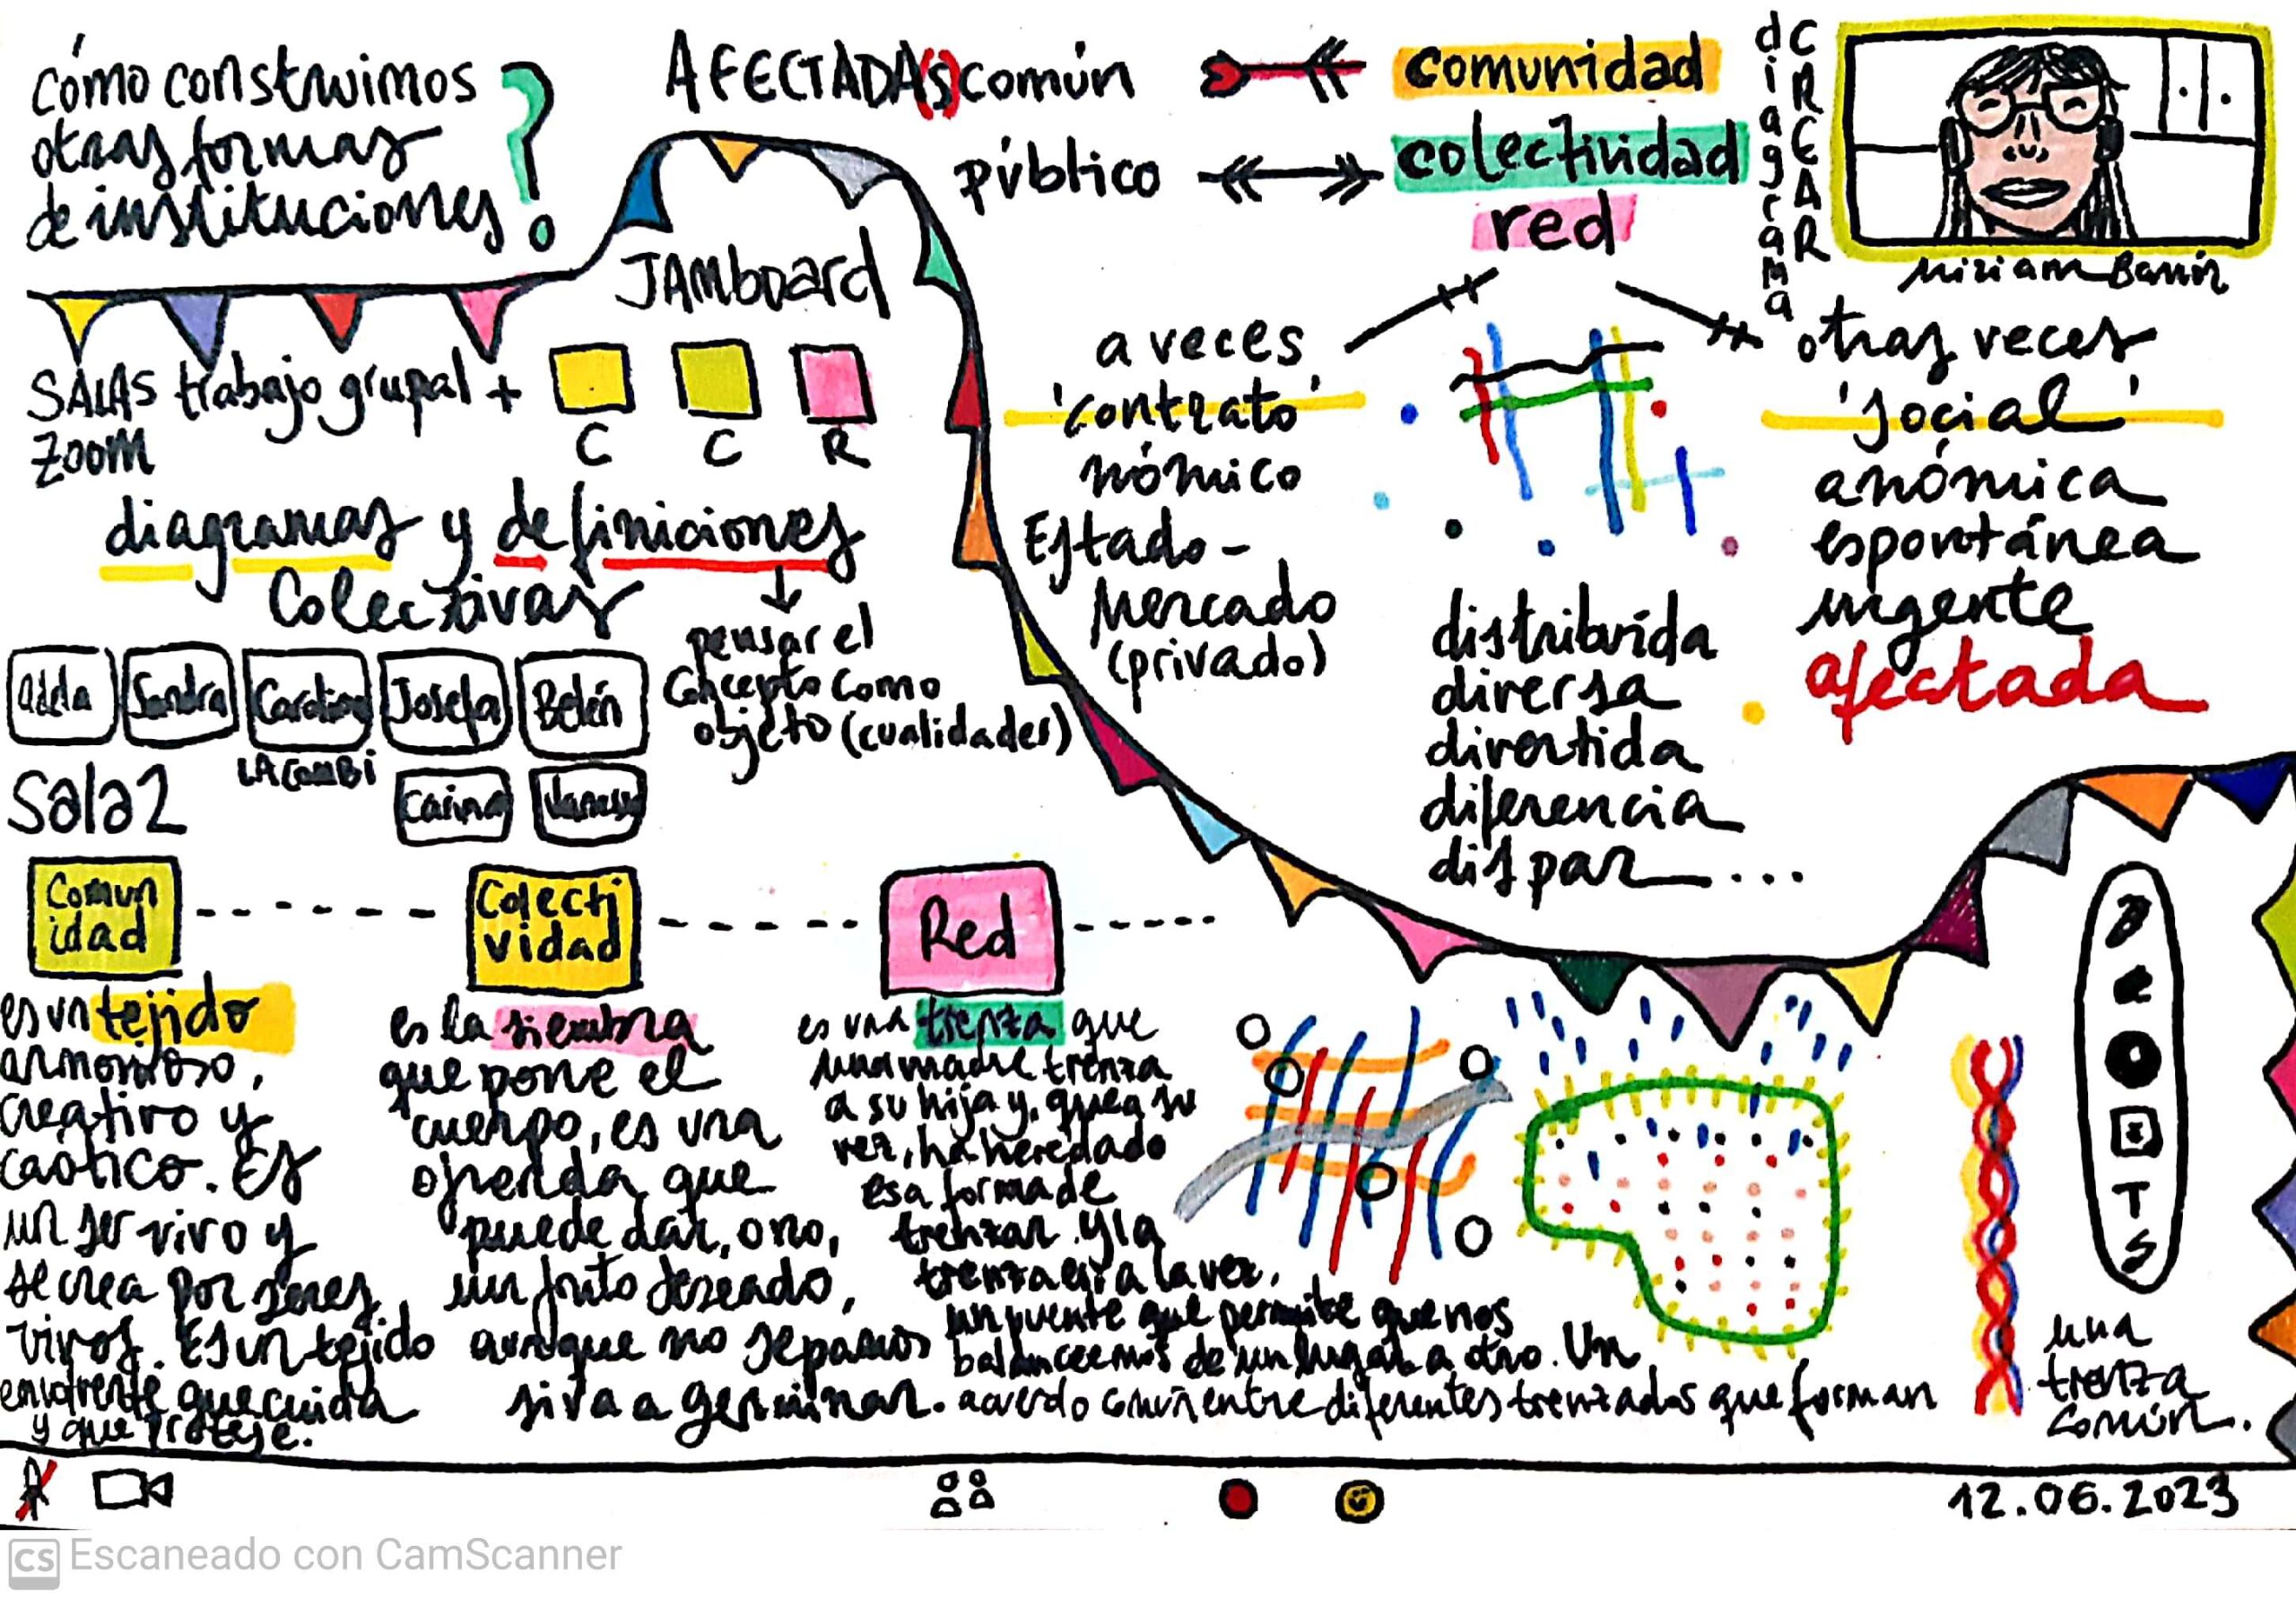 cómo construimos
otras formas
de instituciones ?
AFECTADA(S) común
público
comunidad
colectividad
red
diagrama
CRCEAR
Miriam
JAMboard
SALAS trabajo grupal +
Zoom
C C R
diagramas y definiciones
Colectivas
pensar el
concepto como
objeto (cualidades)
Adela Sandra Carolina Josefa Belén
LA COMBI
Sala 2
Carina Vanessa
a veces
'contrato'
nómico
Estado-
Mercado
(privado)
otras veces
'social'
anómica
espontánea
urgente
afectada
distribuída
diversa
divertida
diferencia
dispar...
Comun
idad
es un tejido
armonioso,
creativo y
caótico. Es
un ser vivo y
se crea por seres
vivos. Es un tejido
envolvente que cuida
y que protege.
Colecti
vidad
es la siembra
que pone el
cuerpo, es una
ofrenda que
puede dar, o no,
un fruto deseado,
aunque no sepamos
si va a germinar.
Red
es una trenza que
una madre trenza
a su hija y, que a su
vez, ha heredado
esa forma de
trenzar. Y la
trenza es a la vez,
un puente que permite que nos
balanceemos de un lugar a otro. Un
acuerdo común entre diferentes trenzados que forman
una
trenza
común.
12.06.2023
CS Escaneado con CamScanner